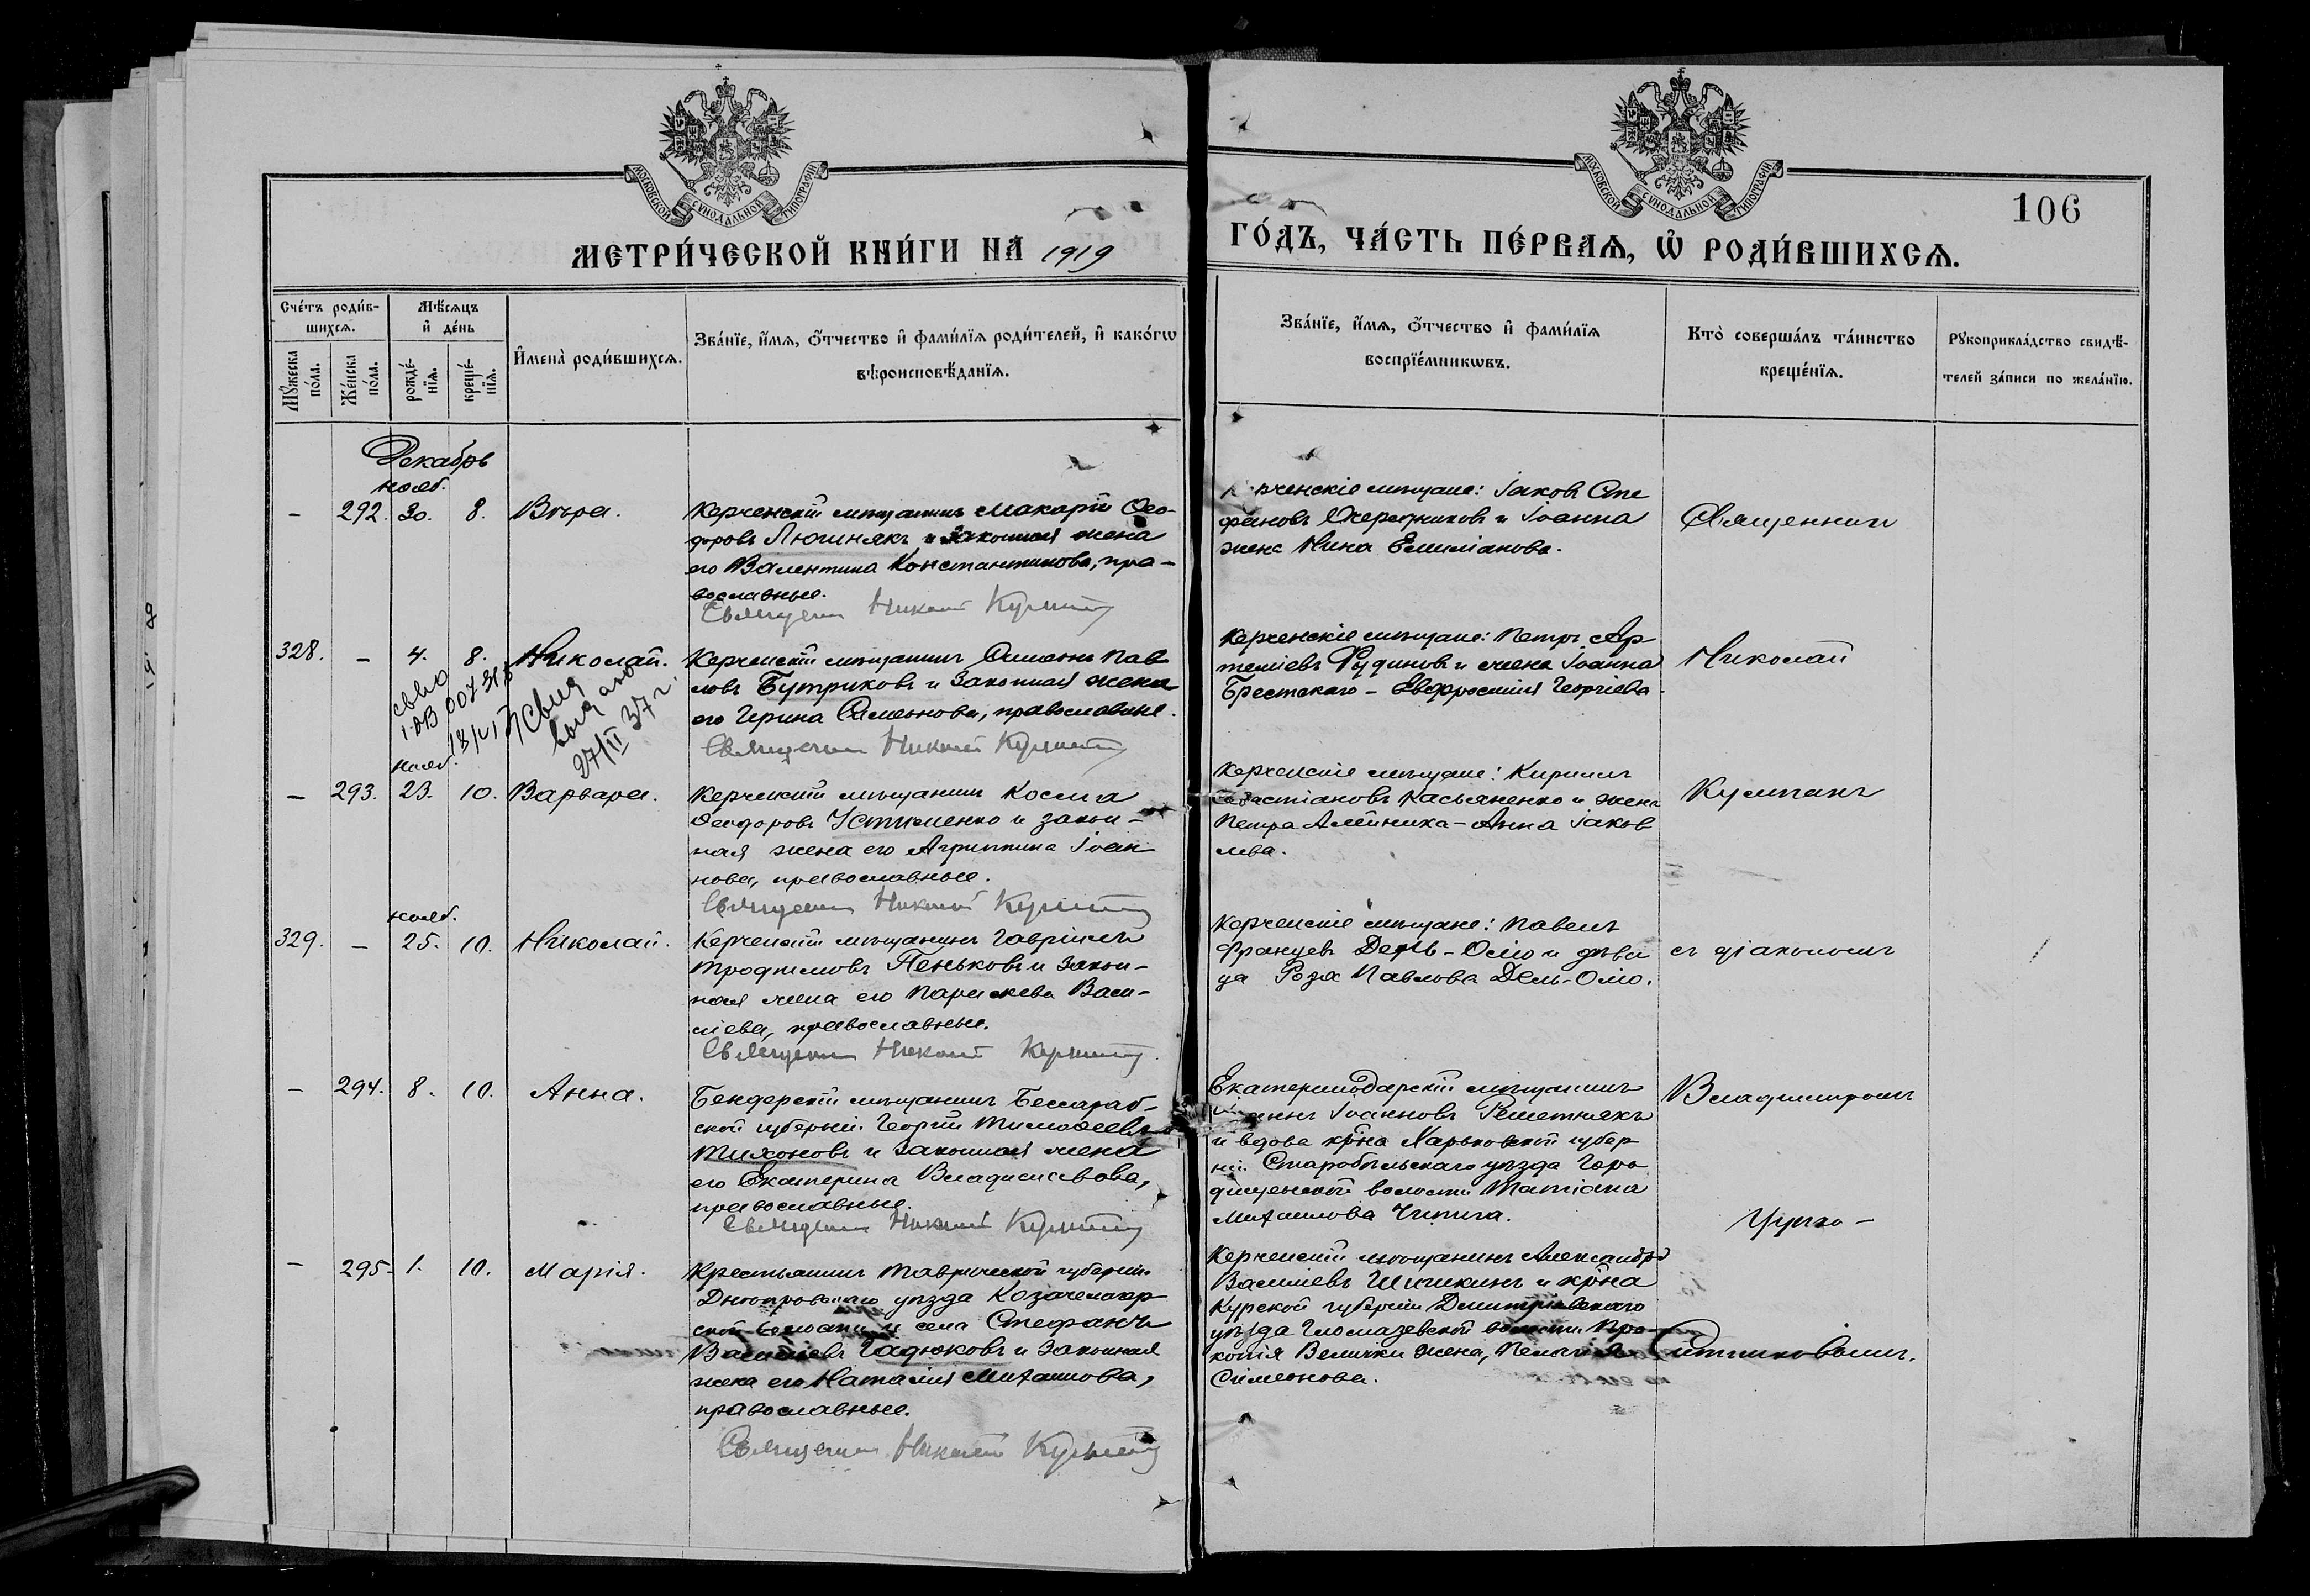 МОСКОВСКОЙ СѴНОДАЛЬНОЙ ТИПОГРАФІИ
МОСКОВСКОЙ СѴНОДАЛЬНОЙ ТИПОГРАФІИ
106
МЕТРИ́ЧЕСКОЙ КНИ́ГИ НА 1919
ГО́ДЪ, ЧА́СТЬ ПЕ́РВАѦ, Ѽ РОДИ́ВШИХСѦ.
Сче́тъ роди́в-
шихсѧ.
Мꙋ́жеска по́ла.
Же́нска по́ла.
Мѣ́сѧцъ
и҆ де́нь
рожде́-
нїѧ.
креще́-
нїѧ.
И҆мена̀ роди́вшихсѧ.
Зва́нїе, и҆́мѧ, ѻ҆́тчество и҆ фами́лїѧ роди́телей, и҆ како́гѡ
вѣроисповѣ́данїѧ.
Зва́нїе, и҆́мѧ, ѻ҆́тчество и҆ фами́лїѧ
воспрїе́мникѡвъ.
Кто̀ соверша́лъ та́инство
креще́нїѧ.
Рꙋкоприкла́дство свидѣ́-
телей за́писи по жела́нїю.
Декабрь
нояб.
– 292. 30. 8. Вѣра.
Керченскій мѣщанинъ Макарій Ѳео-
доровъ Люгинякъ и законная жена
его Валентина Константинова, пра-
вославные.
Священникъ Николай
Керченскіе мѣщане: Іаковъ Сте
фановъ Очередниковъ и Іоанна
жена Нина Емиліанова.
Священникъ
328. – 4. 8. Николай.
Керченскій мѣщанинъ Симеонъ Пав
ловъ Бутриковъ и законная жена
его Ирина Симеонова, православные.
27/II 37 г.
Священникъ Николай
Керченскіе мѣщане: Петръ Ар
теміевъ Рудиновъ и жена Іоанна
Брестскаго – Евфросинія Георгіева.
Николай
нояб.
– 293. 23. 10. Варвара.
Керченскій мѣщанинъ Косма
Ѳеодоровъ Устименко и закон-
ная жена его Агриппина Іоан
нова, православные.
Священникъ Николай
Керченскіе мѣщане: Кириллъ
Севастіановъ Касьяненко и жена
Петра Алейника – Анна Іаков
лева.
нояб.
329. – 25. 10. Николай.
Керченскій мѣщанинъ Гавріилъ
Трофимовъ Пеньковъ и закон-
ная жена его Параскева Васи-
ліева, православные.
Священникъ Николай
Керченскіе мѣщане: Павелъ
Францевъ Дель-Оліо и дѣви
ца Роза Павлова Дель-Оліо.
съ діакономъ
– 294. 8. 10. Анна.
Бендерскій мѣщанинъ Бессараб-
ской губерніи Георгій Тимоѳеевъ
Тихоновъ и законная жена
его Екатерина Владиславова,
православные.
Священникъ Николай
Екатеринодарскій мѣщанинъ
Іоанновъ Решетнякъ
и вдова кр-на Харьковской губер
ніи Старобѣльскаго уѣзда Горо
дищенской волости Татіана
Михаилова Чипига.
Владиміромъ
– 295. 1. 10. Марія.
Крестьянинъ Таврической губерніи
Днѣпровскаго уѣзда Козачелагер
ской волости и села Стефанъ
Василіевъ Гадюковъ и законная
жена его Наталія Михаилова,
православные.
Священникъ Николай
Керченскій мѣщанинъ Александръ
Василіевъ Шишкинъ и кр-на
Курской губерніи Дмитріевскаго
уѣзда волости Про-
копія Велички жена, Пелагія
Симеонова.
Ситниковымъ.